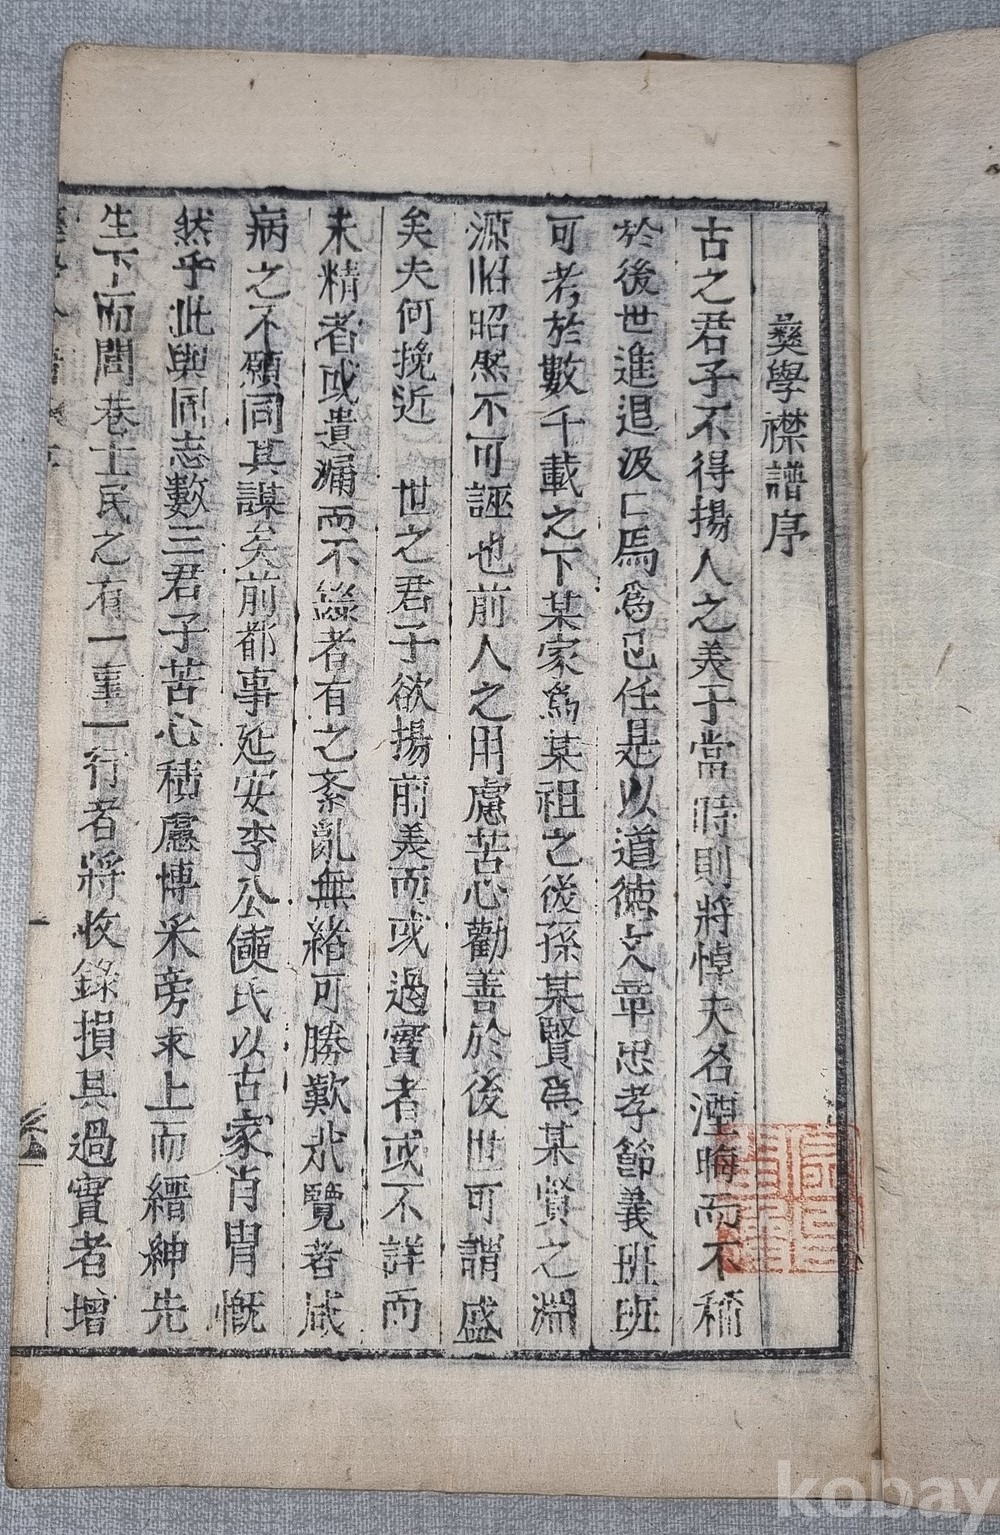 彜學襟譜序
古之君子不得揚人之義于當時則將悼夫名湮晦而不稱
於後世進退汲亡焉爲己任是以道德文章忠孝節義班班
可考於數千載之下某家爲某祖之後孫某賢爲某賢之淵
源昭昭然不可誣也前人之用慮苦心勸善於後世可謂盛
矣夫何挽近 世之君子欲揚前義而或過實者或不詳而
未精者或遺漏而不錄者有之紊亂無緖可勝歎㢤覽者咸
病之不願同其謀矣前都事延安李公僩氏以古家肖胄慨
然乎此與同志數三君子苦心積慮博采旁求上而縉紳先
生下而閭巷士民之有一事一行者將收錄損其過實者增
kobay